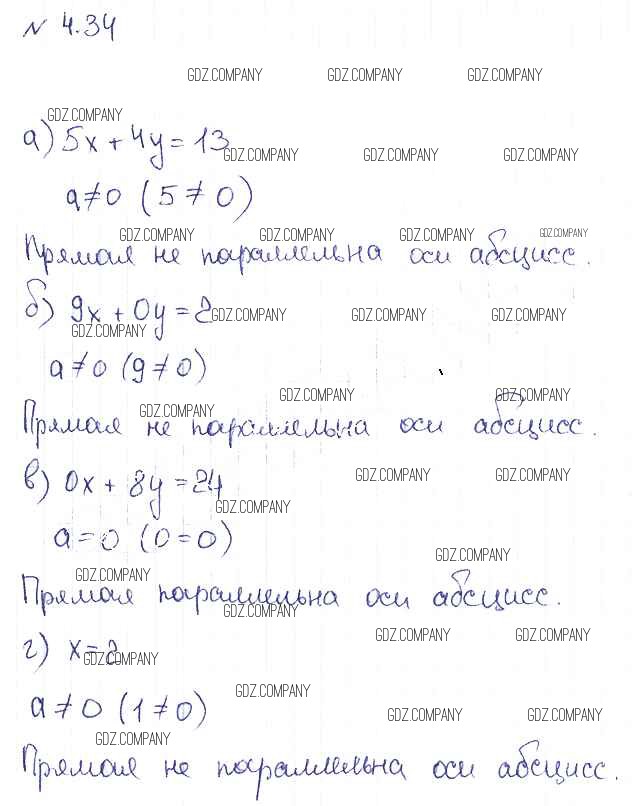 N 4.34
GDZ.COMPANY GDZ.COMPANY GDZ.COMPANY
GDZ.COMPANY
а) 5x + 4y = 13
GDZ.COMPANY GDZ.COMPANY GDZ.COMPANY
a ≠ 0 (5 ≠ 0)
GDZ.COMPANY GDZ.COMPANY GDZ.COMPANY GDZ.COMPANY
Прямая не параллельна оси абсцисс.
б) 9x + 0y = 2
GDZ.COMPANY GDZ.COMPANY GDZ.COMPANY
GDZ.COMPANY
a ≠ 0 (9 ≠ 0)
GDZ.COMPANY GDZ.COMPANY
GDZ.COMPANY
Прямая не параллельна оси абсцисс.
в) 0x + 8y = 24
GDZ.COMPANY GDZ.COMPANY
GDZ.COMPANY
a = 0 (0 = 0)
GDZ.COMPANY
GDZ.COMPANY
Прямая параллельна оси абсцисс.
GDZ.COMPANY
GDZ.COMPANY GDZ.COMPANY
г) x = 2
GDZ.COMPANY
GDZ.COMPANY
a ≠ 0 (1 ≠ 0)
GDZ.COMPANY GDZ.COMPANY
GDZ.COMPANY
Прямая не параллельна оси абсцисс.